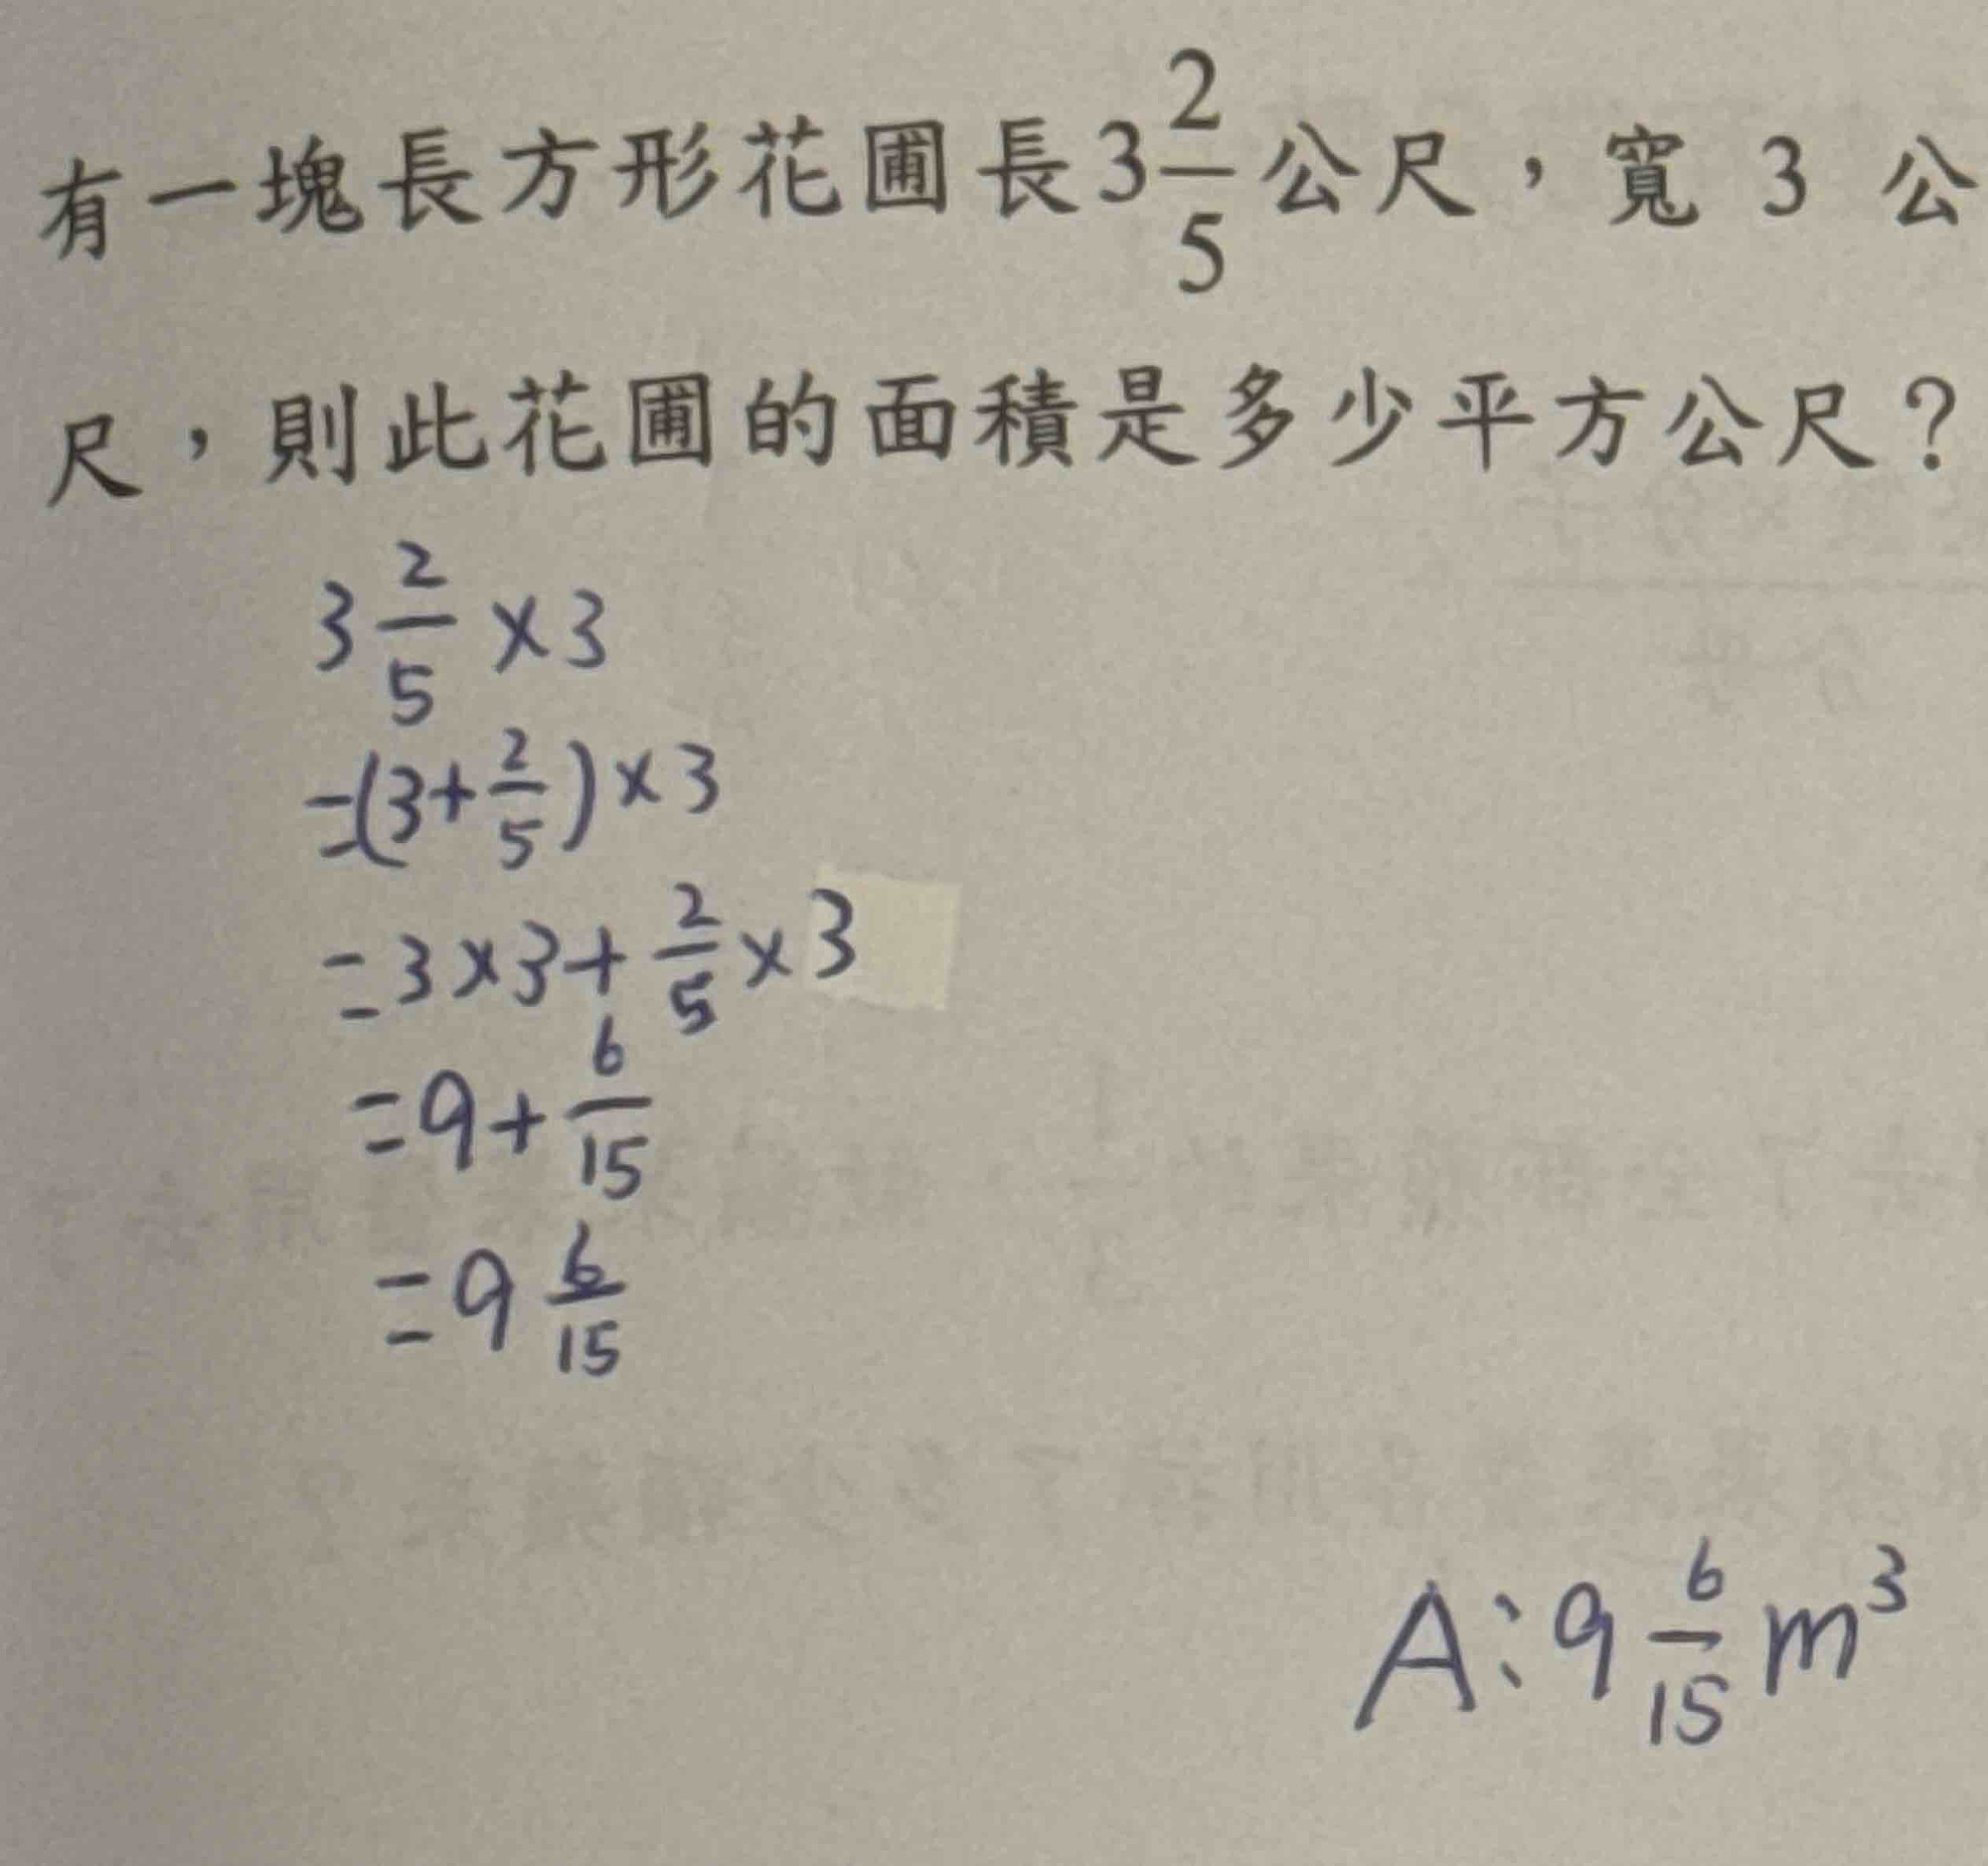 有一塊長方形花圃長3 2/5公尺，寬 3 公
尺，則此花圃的面積是多少平方公尺？
3 2/5 × 3
=(3+2/5)×3
=3×3+2/5×3
=9+6/15
=9 6/15
A:9 6/15 m³